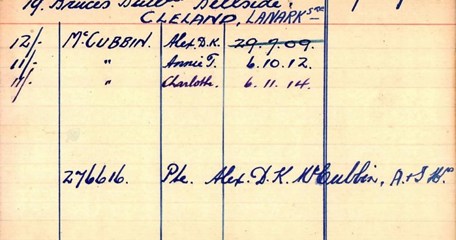 19, Bruces Bellside,
CLELAND, LANARKSRE
12/- McCUBBIN. Alex. D.K. 29.9.09.
11/- " Annie T. 6.10.12.
11/- " Charlotte. 6.11.14.
276616. Pte. Alex. D. K. McCubbin, A+S Hrs